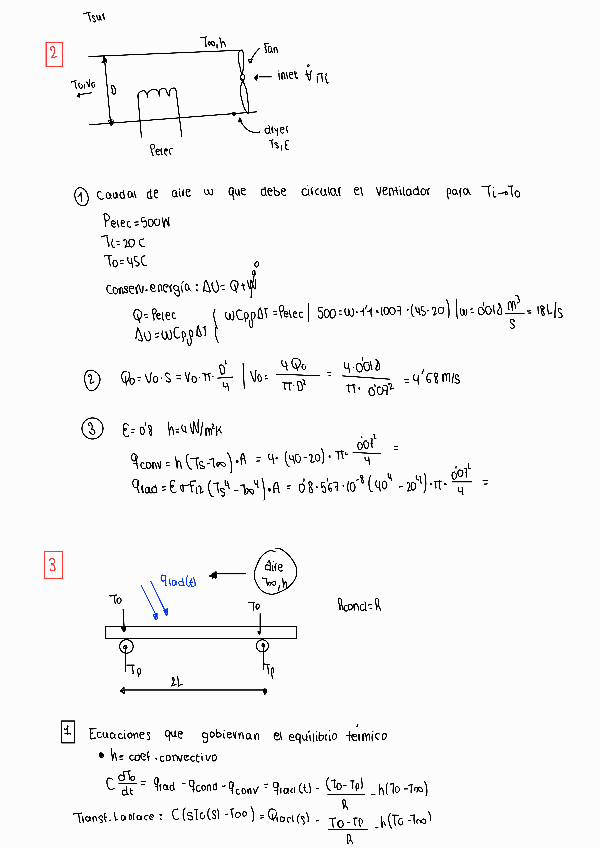 Tsur
2
T∞,h
Fan
inlet V̇,Ti
To,Vo
D
dryer
Ts,E
Pelec
① Caudal de aire w que debe circular el ventilador para Ti→To
Pelec=500W
Ti=20C
To=45C
conserv.energía: ΔU=Q+W 0
Q=Pelec
ΔU=wCpρΔT
{ wCpρΔT=Pelec | 500=w·1'1·1007·(45-20) | w=0'018 m³/s = 18L/s
② Qo=Vo·S=Vo·π·D²/4 | Vo= 4Qo/π·D² = 4·0'018/π·0'07² = 4'68m/s
③ E=0'8 h=4W/m²K
qconv=h(Ts-T∞)·A = 4·(40-20)·π·0'07²/4 =
qrad=EσF12(Ts⁴-T∞⁴)·A = 0'8·5'67·10⁻⁸(40⁴-20⁴)·π·0'07²/4 =
3
qrad(t)
aire
T∞,h
To
To
Rcond=R
Tp
Tp
2L
1 Ecuaciones que gobiernan el equilibrio térmico
• h= coef.convectivo
C dTo/dt = qrad -qcond-qconv = qrad(t) - (To-Tp)/R - h(To-T∞)
Transf.Laplace: C(sTo(s)-Too)=Qrad(s) - To-Tp/R - h(To-T∞)